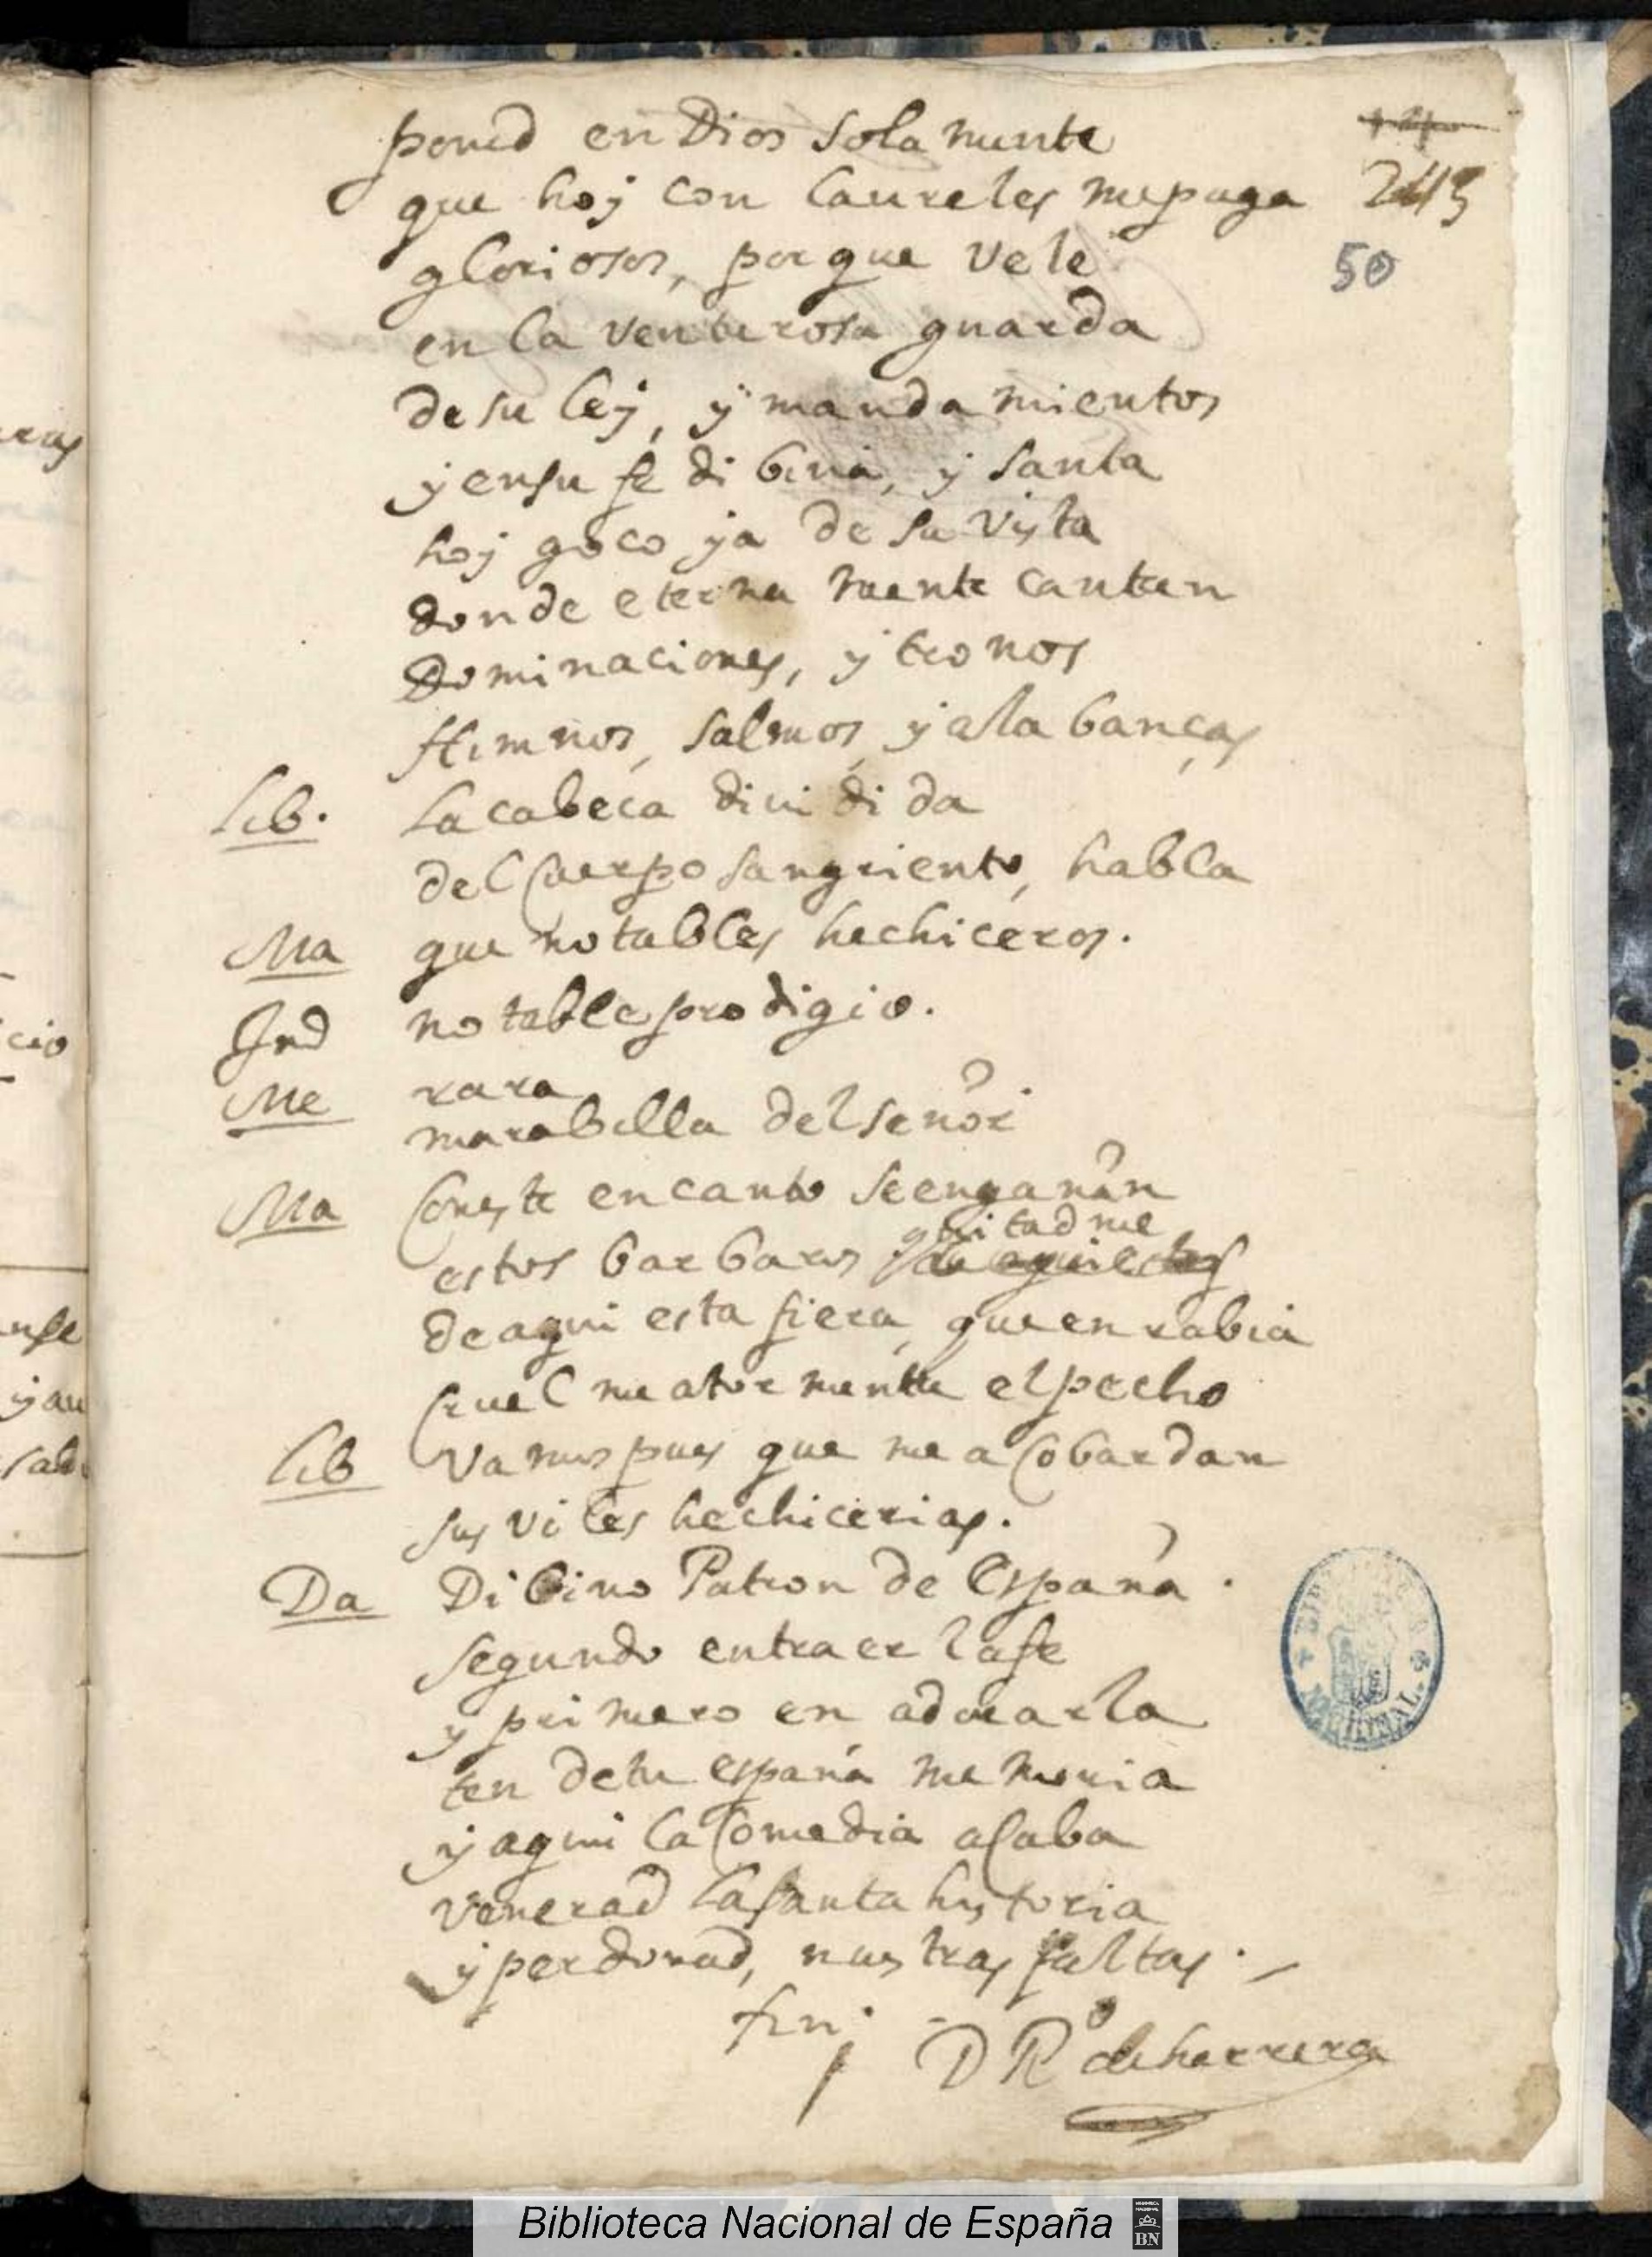 poned en Dios sola mente
que hoy con laureles me paga
gloriosos, porque vele
en la venturosa guarda
de su ley, y manda mientos
y en su fe di bina, y santa
hoy goco ya de su vista
donde eterna mente cantan
Dominaciones, y tronos
Himnos, salmos, y ala banças
Lib. La cabeça divi di da
del cuerpo sangriento, habla
Ma que notables hechiceros.
Ind notable prodigio.
Me rara
marabilla del señor
Ma Con este encanto se engañan
quitadme
estos barbaros
de aqui esta fiera, que en rabia
cruel me atormenta el pecho
Lib Vamos pues que me acobardan
sus viles hechicerias.
Da Dibino Patron de España.
segundo en traer la fe
y primero en adorarla
ten de tu españa memoria
y aqui la Comedia acaba
venerad la santa historia
y perdonad, nuestras faltas.
fin
D Ro de herrera
245
50
BIBLIOTECA NACIONAL
Biblioteca Nacional de España
BN